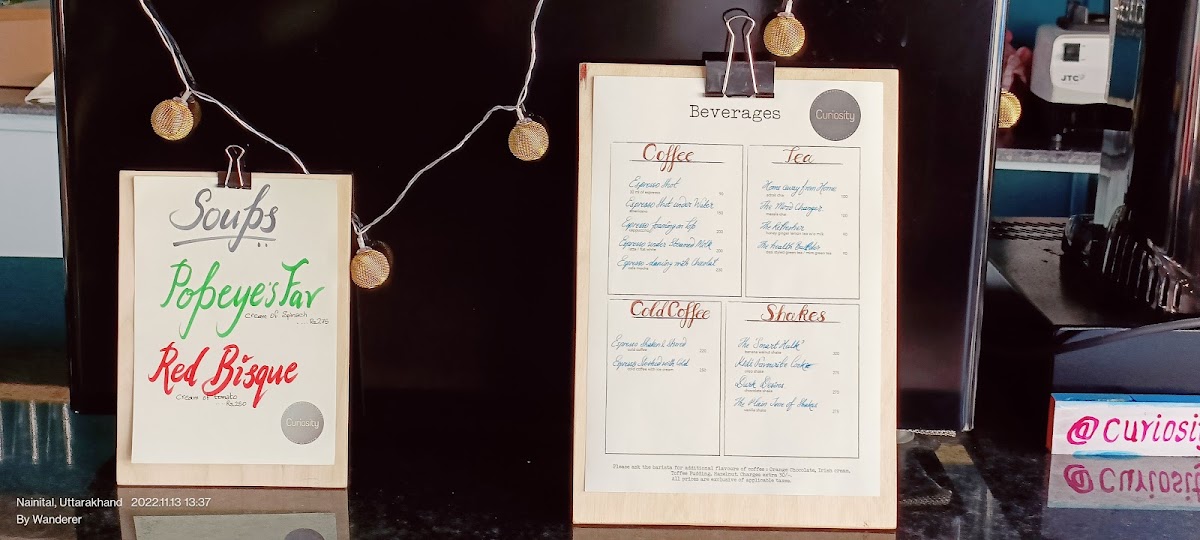 Soups
Popeye's Fav
Cream of Spinach
....Rs275
Red Bisque
Cream of tomato
...Rs.250
Curiosity
Beverages
Curiosity
Coffee
Espresso Shot
Espresso Shot under Water
Espresso foaming on Top
Espresso under Steamed Milk
Espresso dancing with Chocolat
Tea
Home away from Home
The Mood Changer
masala chai
The Refresher
The Health Builder
Cold Coffee
Espresso Shaken & Stirred
cold coffee
Espresso Stocked with Cold
cold coffee with ice cream
Shakes
The "Smart Hulk"
banana walnut shake
Kid's Favourite Cookie
oreo shake
Dark Desire
chocolate shake
The Plain Jane of Shakes
vanilla shake
Please ask the barista for additional flavours of coffee : Orange Chocolate, Irish cream,
Toffee Pudding, Hazelnut. Charges extra 50/-.
All prices are exclusive of applicable taxes.
JTC
@curiosity
Nainital, Uttarakhand 2022.11.13 13:37
By Wanderer